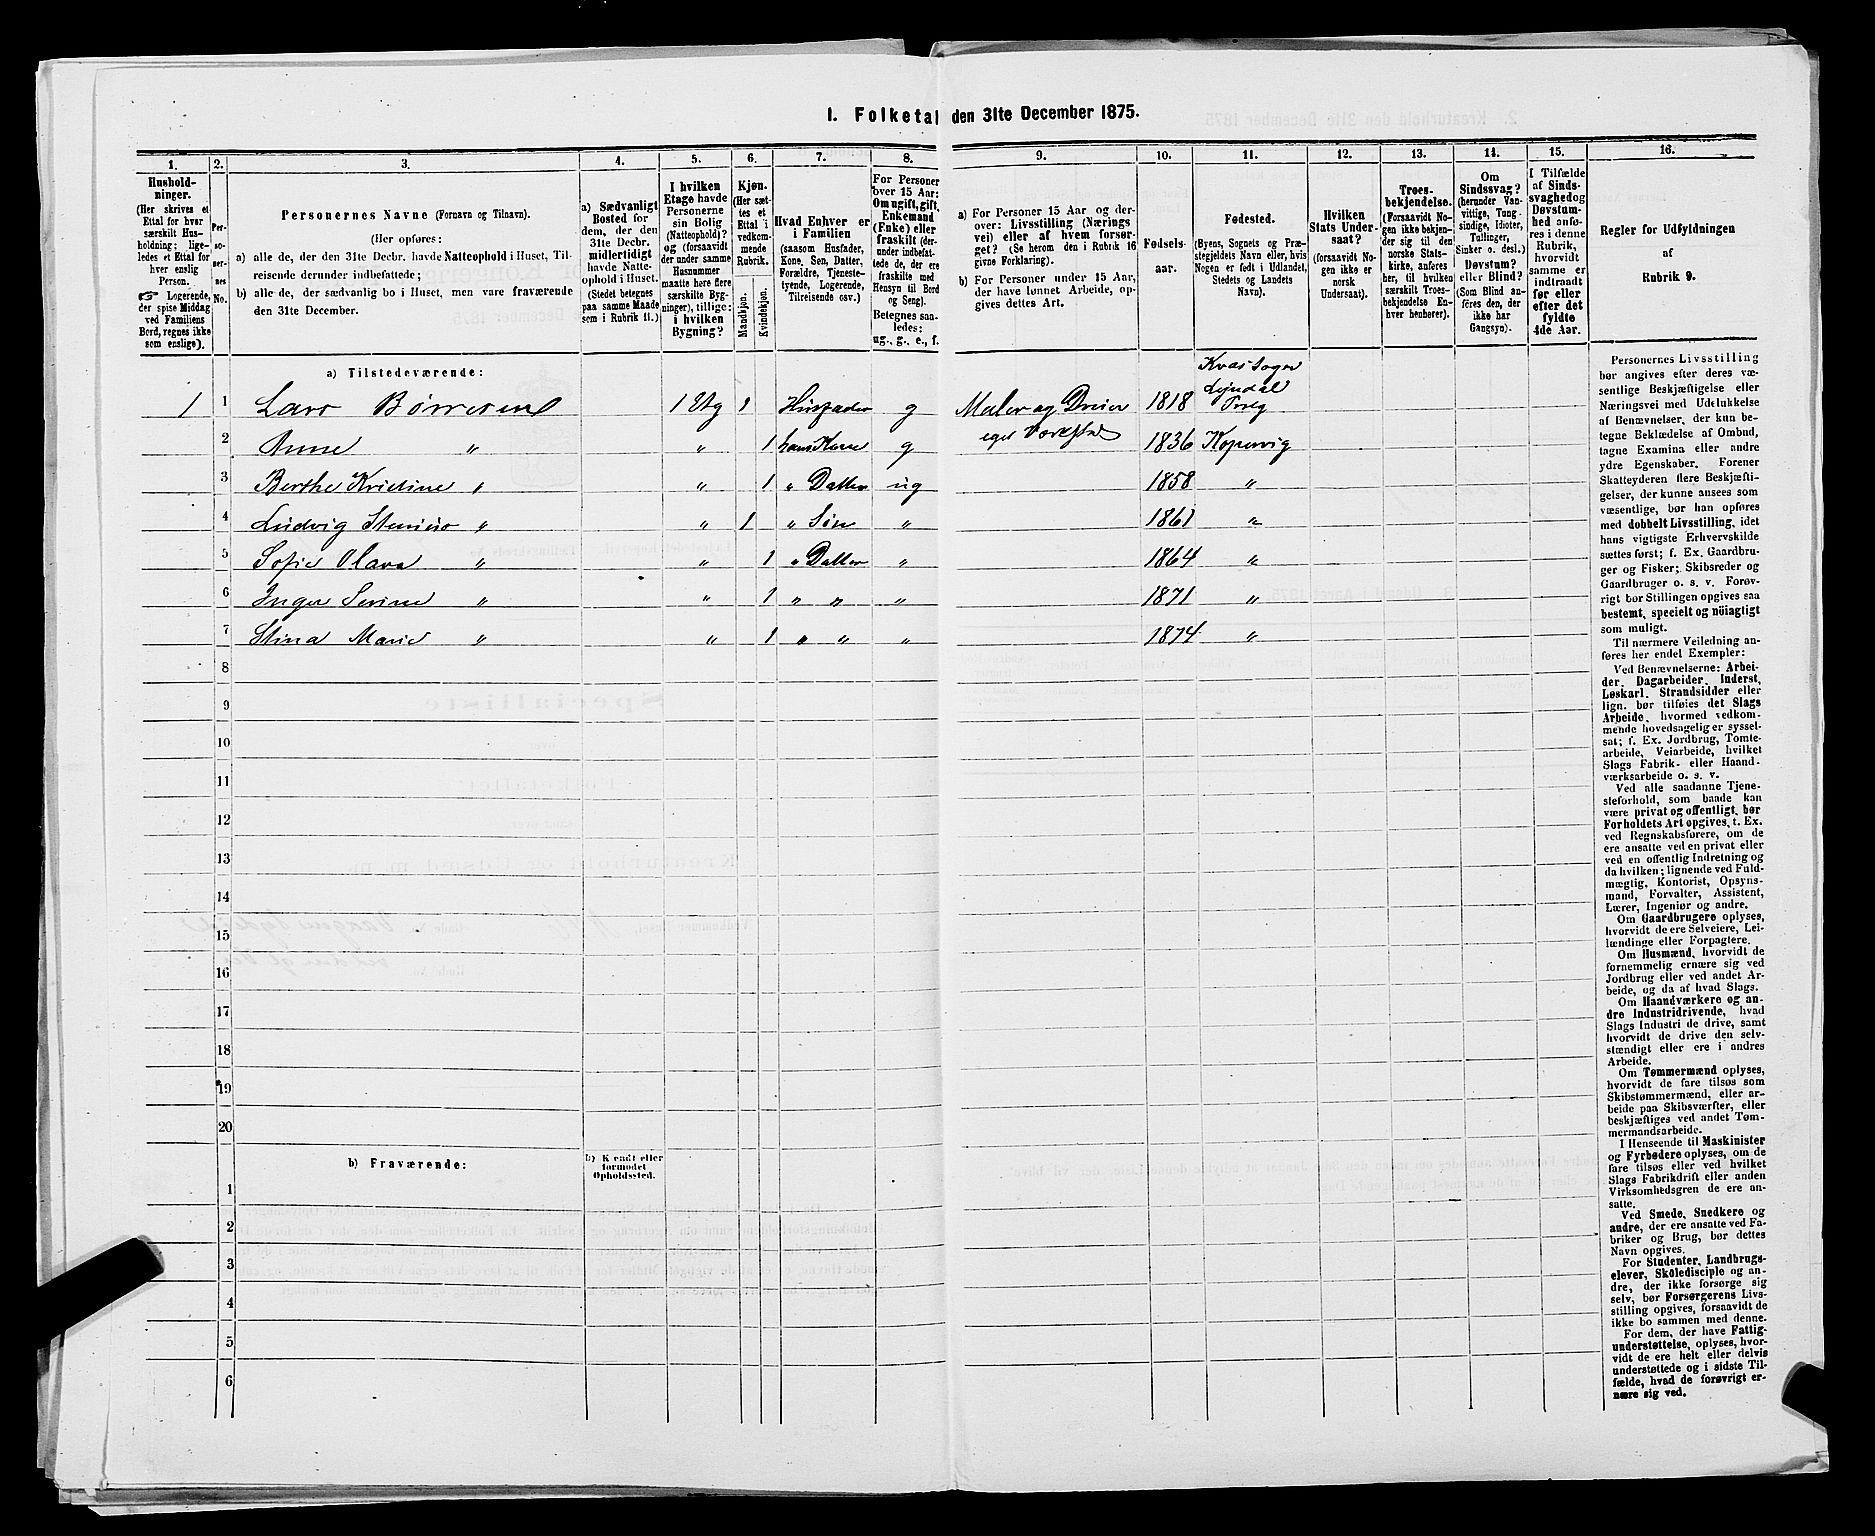 1. Folketal den 31te December 1875.
1. 2. 3. 4. 5. 6. 7. 8. 9. 10. 11. 12. 13. 14. 15. 16.
Hushold-
ninger.
(Her skrives et
Ettal for hver
særskilt Hus-
holdning; lige-
ledes et Ettal for
hver enslig
Person.
☞ Logerende,
der spise Middag
ved Familiens
Bord, regnes ikke
som enslige).
Per-
so-
ner-
nes
No.
Personernes Navne (Fornavn og Tilnavn).
(Her opføres:
a) alle de, der den 31te Decbr. havde Natteophold i Huset, Til-
reisende derunder indbefattede;
b) alle de, der sædvanlig bo i Huset, men vare fraværende
den 31te December.
a) Sædvanligt
Bosted for
dem, der den
31te Decbr.
midlertidigt
havde Natte-
ophold i Huset.
(Stedet betegnes
paa samme Maade
som i Rubrik 11.)
I hvilken
Etage havde
Personerne
sin Bolig
(Natteophold)?
og (forsaavidt
der under samme
Husnummer
maatte høre flere
særskilte Byg-
ninger), tillige:
i hvilken
Bygning?
Kjøn.
(Her sæt-
tes et
Ettal i
vedkom-
mende
Rubrik.
Mandkjøn.
Kvindekjøn.
Hvad Enhver er
i Familien
(saasom Husfader,
Kone, Søn, Datter,
Forældre, Tjeneste-
tyende, Logerende,
Tilreisende osv.)
For Personer
over 15 Aar:
Om ugift, gift,
Enkemand
(Enke) eller
fraskilt (der-
under indbefat-
tede de, der ere
fraskilte med
Hensyn til Bord
og Seng).
Betegnes saa-
ledes:
ug., g., e., f.
a) For Personer 15 Aar og der-
over: Livsstilling (Nærings
vei) eller af hvem forsør-
get? (Se herom den i Rubrik 16
givne Forklaring).
b) For Personer under 15 Aar,
der have lønnet Arbeide, op-
gives dettes Art.
Fødsels-
aar.
Fødested.
(Byens, Sognets og Præ-
stegjeldets Navn eller, hvis
Nogen er født i Udlandet,
Stedets og Landets
Navn).
Hvilken
Stats Under-
saat?
(forsaavidt No-
gen ikke er
norsk
Undersaat).
Troes-
bekjendelse.
(Forsaavidt No-
gen ikke bekjen-
der sig til den
norske Stats-
kirke, anføres
her, til hvilken
særskilt Troes-
bekjendelse En-
hver henhører).
Om
Sindssvag?
(herunder Van-
vittige, Tung-
sindige, Idioter,
Tullinger,
Sinker o. desl.)
Døvstum?
eller Blind?
(Som Blind an-
føres den, der
ikke har
Gangsyn).
I Tilfælde
af Sinds-
svaghed og
Døvstum-
hed anfø-
res i denne
Rubrik,
hvorvidt
samme er
indtraadt
før eller
efter det
fyldte
4de Aar.
Regler for Udfyldningen
af
Rubrik 9.
a) Tilstedeværende:
Kvas Sogn
Lyndal
1 1 Lars Børresen 1 Etg 1 Husfader g Maler og Dreier 1818 Prstg
eget Værksted
2 Anne " " 1 hans Kone g 1836 Kopervig
3 Berthe Kristine " " 1 " Datter ug 1858 "
4 Ludvig " " 1 " Søn " 1861 "
5 Sofie Olava " " 1 " Datter " 1864 "
6 Inger Serine " " 1 " " " 1871 "
7 Stina Marie " " 1 " " " 1874 "
8
9
10
11
12
13
14
15
16
17
18
19
20
b) Fraværende:
b) Kendt eller
formodet
Opholdssted.
1
2
3
4
5
6
Personernes Livsstilling
bør angives efter deres væ-
sentlige Beskjæftigelse eller
Næringsvei med Udelukkelse
af Benævnelser, der kun be-
tegne Beklædelse af Ombud,
tagne Examina eller andre
ydre Egenskaber. Forener
Skatteyderen flere Beskjæfti-
gelser, der kunne ansees som
væsentlige, bør han opføres
med dobbelt Livsstilling, idet
hans vigtigste Erhvervskilde
sættes først; f. Ex. Gaardbru-
ger og Fisker; Skibsreder og
Gaardbruger o. s. v. Forøv-
rigt bør Stillingen opgives saa
bestemt, specielt og nöiagtigt
som muligt.
Til nærmere Veiledning an-
føres her endel Exempler:
Ved Benævnelserne: Arbei-
der, Dagarbeider, Inderst,
Løskarl, Strandsidder eller
lign. bør tilføies det Slags
Arbeide, hvormed vedkom-
mende hovedsagelig er syssel-
sat; f. Ex. Jordbrug, Tomte-
arbeide, Veiarbeide, hvilket
Slags Fabrik- eller Haand-
værksarbeide o. s. v.
Ved alle saadanne Tjene-
steforhold, som baade kan
være privat og offentligt, bør
Forholdets Art opgives, t. Ex.
ved Regnskabsførere, om de
ere ansatte ved en privat eller
ved en offentlig Indretning og
da hvilken; lignende ved Fuld-
mægtig, Kontorist, Opsyns-
mand, Forvalter, Assistent,
Lærer, Ingeniør og andre.
Om Gaardbrugere oplyses,
hvorvidt de ere Selveiere, Lei-
lændinge eller Forpagtere.
Om Husmænd, hvorvidt de
fornemmelig ernære sig ved
Jordbrug eller ved andet Ar-
beide, og da af hvad Slags.
Om Haandværkere og an-
dre Industridrivende, hvad
Slags Industri de drive, samt
hvorvidt de drive den selv-
stændigt eller ere i andres
Arbeide.
Om Tømmermænd oplyses,
hvorvidt de fare tilsøs som
Skibstømmermænd, eller ar-
beide paa Skibsværfter, eller
beskjæftiges ved andet Tøm-
mermandsarbeide.
I Henseende til Maskinister
og Fyrbødere oplyses, om de
fare tilsøs eller ved hvilket
Slags Fabrikdrift eller anden
Virksomhedsgren de ere an-
satte.
Ved Smede, Snedkere og
andre, der ere ansatte ved Fa-
briker og Brug, bør dettes
Navn opgives.
For Studenter, Landbrugs-
elever, Skoledisciple og an-
dre, der ikke forsørge sig
selv, bør Forsørgerens Livs-
stilling opgives, forsaavidt de
ikke bo sammen med denne.
For dem, der have Fattig-
understøttelse, oplyses, hvor-
vidt de ere helt eller delvis
understøttede og i sidste Til-
fælde, hvad de forøvrigt er-
nære sig ved.